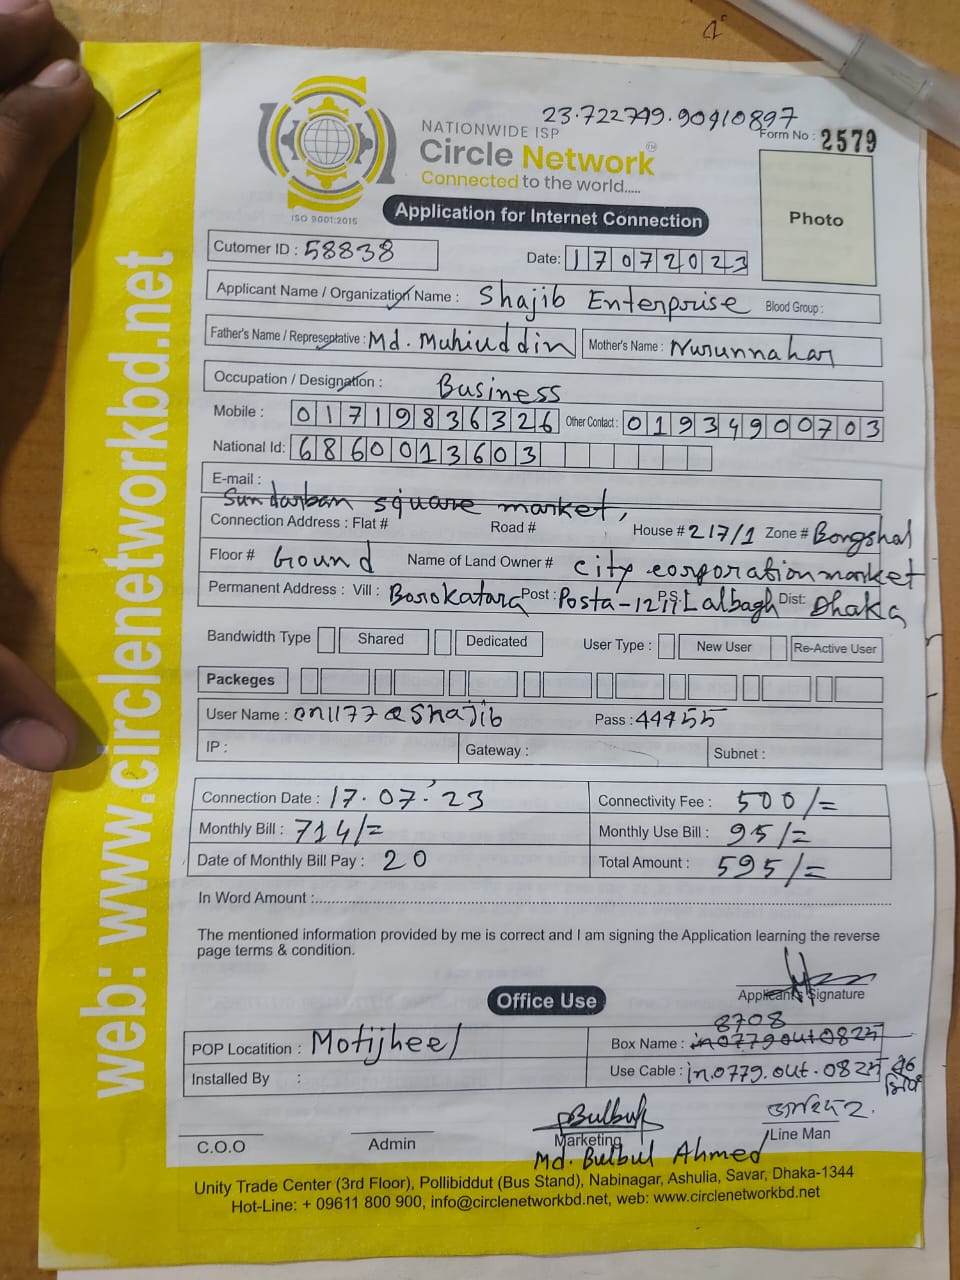 23.722749.90410897
NATIONWIDE ISP
Form No : 2579
Circle Network TM
Connected to the world.....
ISO 9001:2015
Application for Internet Connection
Photo
Cutomer ID : 58838
Date: 17072023
Applicant Name / Organization Name : Shajib Enterprise Blood Group :
Father's Name / Representative : Md. Muhiuddin Mother's Name : Nurunnahar
Occupation / Designation : Business
Mobile : 01719836326 Other Contact : 01934900703
National Id: 6860013603
E-mail :
Sundarban square market,
Connection Address : Flat # Road # House # 217/1 Zone # Bongshal
Floor # Ground Name of Land Owner # city corporation market
Permanent Address : Vill : Borokatara Post : Posta-1211 P.S: Lalbagh Dist: Dhaka
Bandwidth Type Shared Dedicated User Type : New User Re-Active User
Packeges
User Name : cn1177@shajib Pass : 44455
IP : Gateway : Subnet :
Connection Date : 17.07.'23 Connectivity Fee : 500/=
Monthly Bill : 714/= Monthly Use Bill : 95/=
Date of Monthly Bill Pay : 20 Total Amount : 595/=
In Word Amount :
The mentioned information provided by me is correct and I am signing the Application learning the reverse
page terms & condition.
Applicant's Signature
Office Use
8708
POP Locatition : Motijheel Box Name : in0779out0825
Installed By : Use Cable : in.0779.out.0825
Bulbul
C.O.O Admin Marketing Line Man
Md. Bulbul Ahmed
Unity Trade Center (3rd Floor), Pollibiddut (Bus Stand), Nabinagar, Ashulia, Savar, Dhaka-1344
Hot-Line: + 09611 800 900, info@circlenetworkbd.net, web: www.circlenetworkbd.net
web: www.circlenetworkbd.net